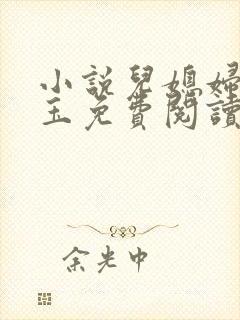 小說兒媳婦
玉免費閱讀
余光中